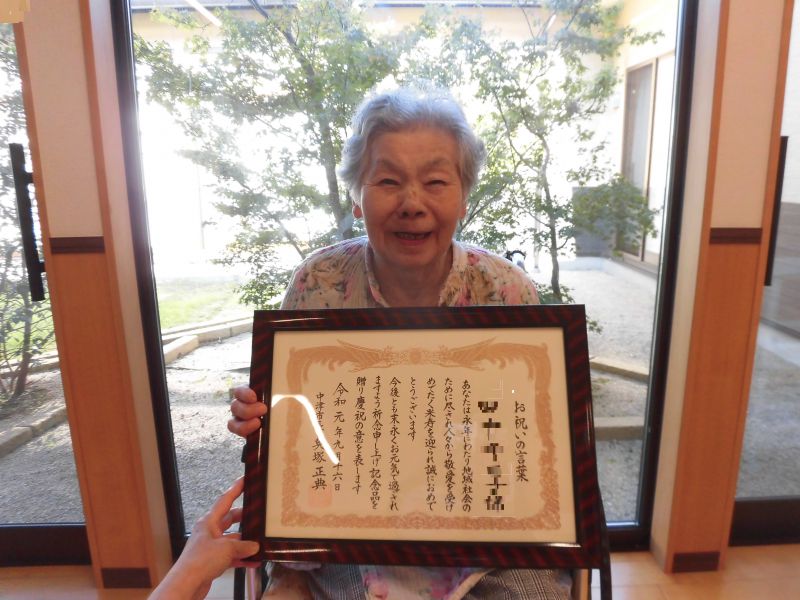 お祝いの言葉
あなたは永年にわたり地域社会の
ために尽され人々から敬愛を受け
めでたく米寿を迎られ誠におめで
とうございます
今後とも末永くお元気で過され
ますよう祈念申し上げ記念品を
贈り慶祝の意を表します
令和元年九月十六日
中津市長 奥塚正典